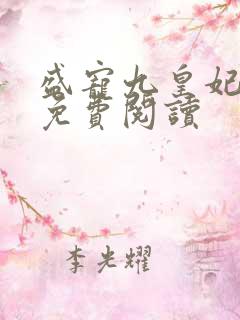 盛寵九皇妃
免費閱讀
李光耀